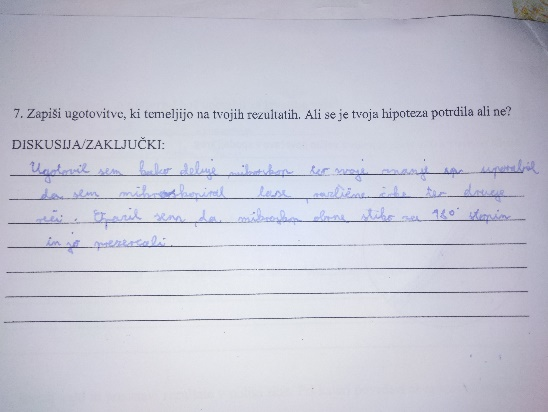 7. Zapiši ugotovitve, ki temeljijo na tvojih rezultatih. Ali se je tvoja hipoteza potrdila ali ne?
DISKUSIJA/ZAKLJUČKI:
Ugotovil sem kako deluje mikroskop ter svoje znanje sp uporabil
da sem mikroskopiral lase, različne črke ter druge
reči. Opazil sem, da mikroskop obrne sliko za 180° stopin
in jo prezrcali.